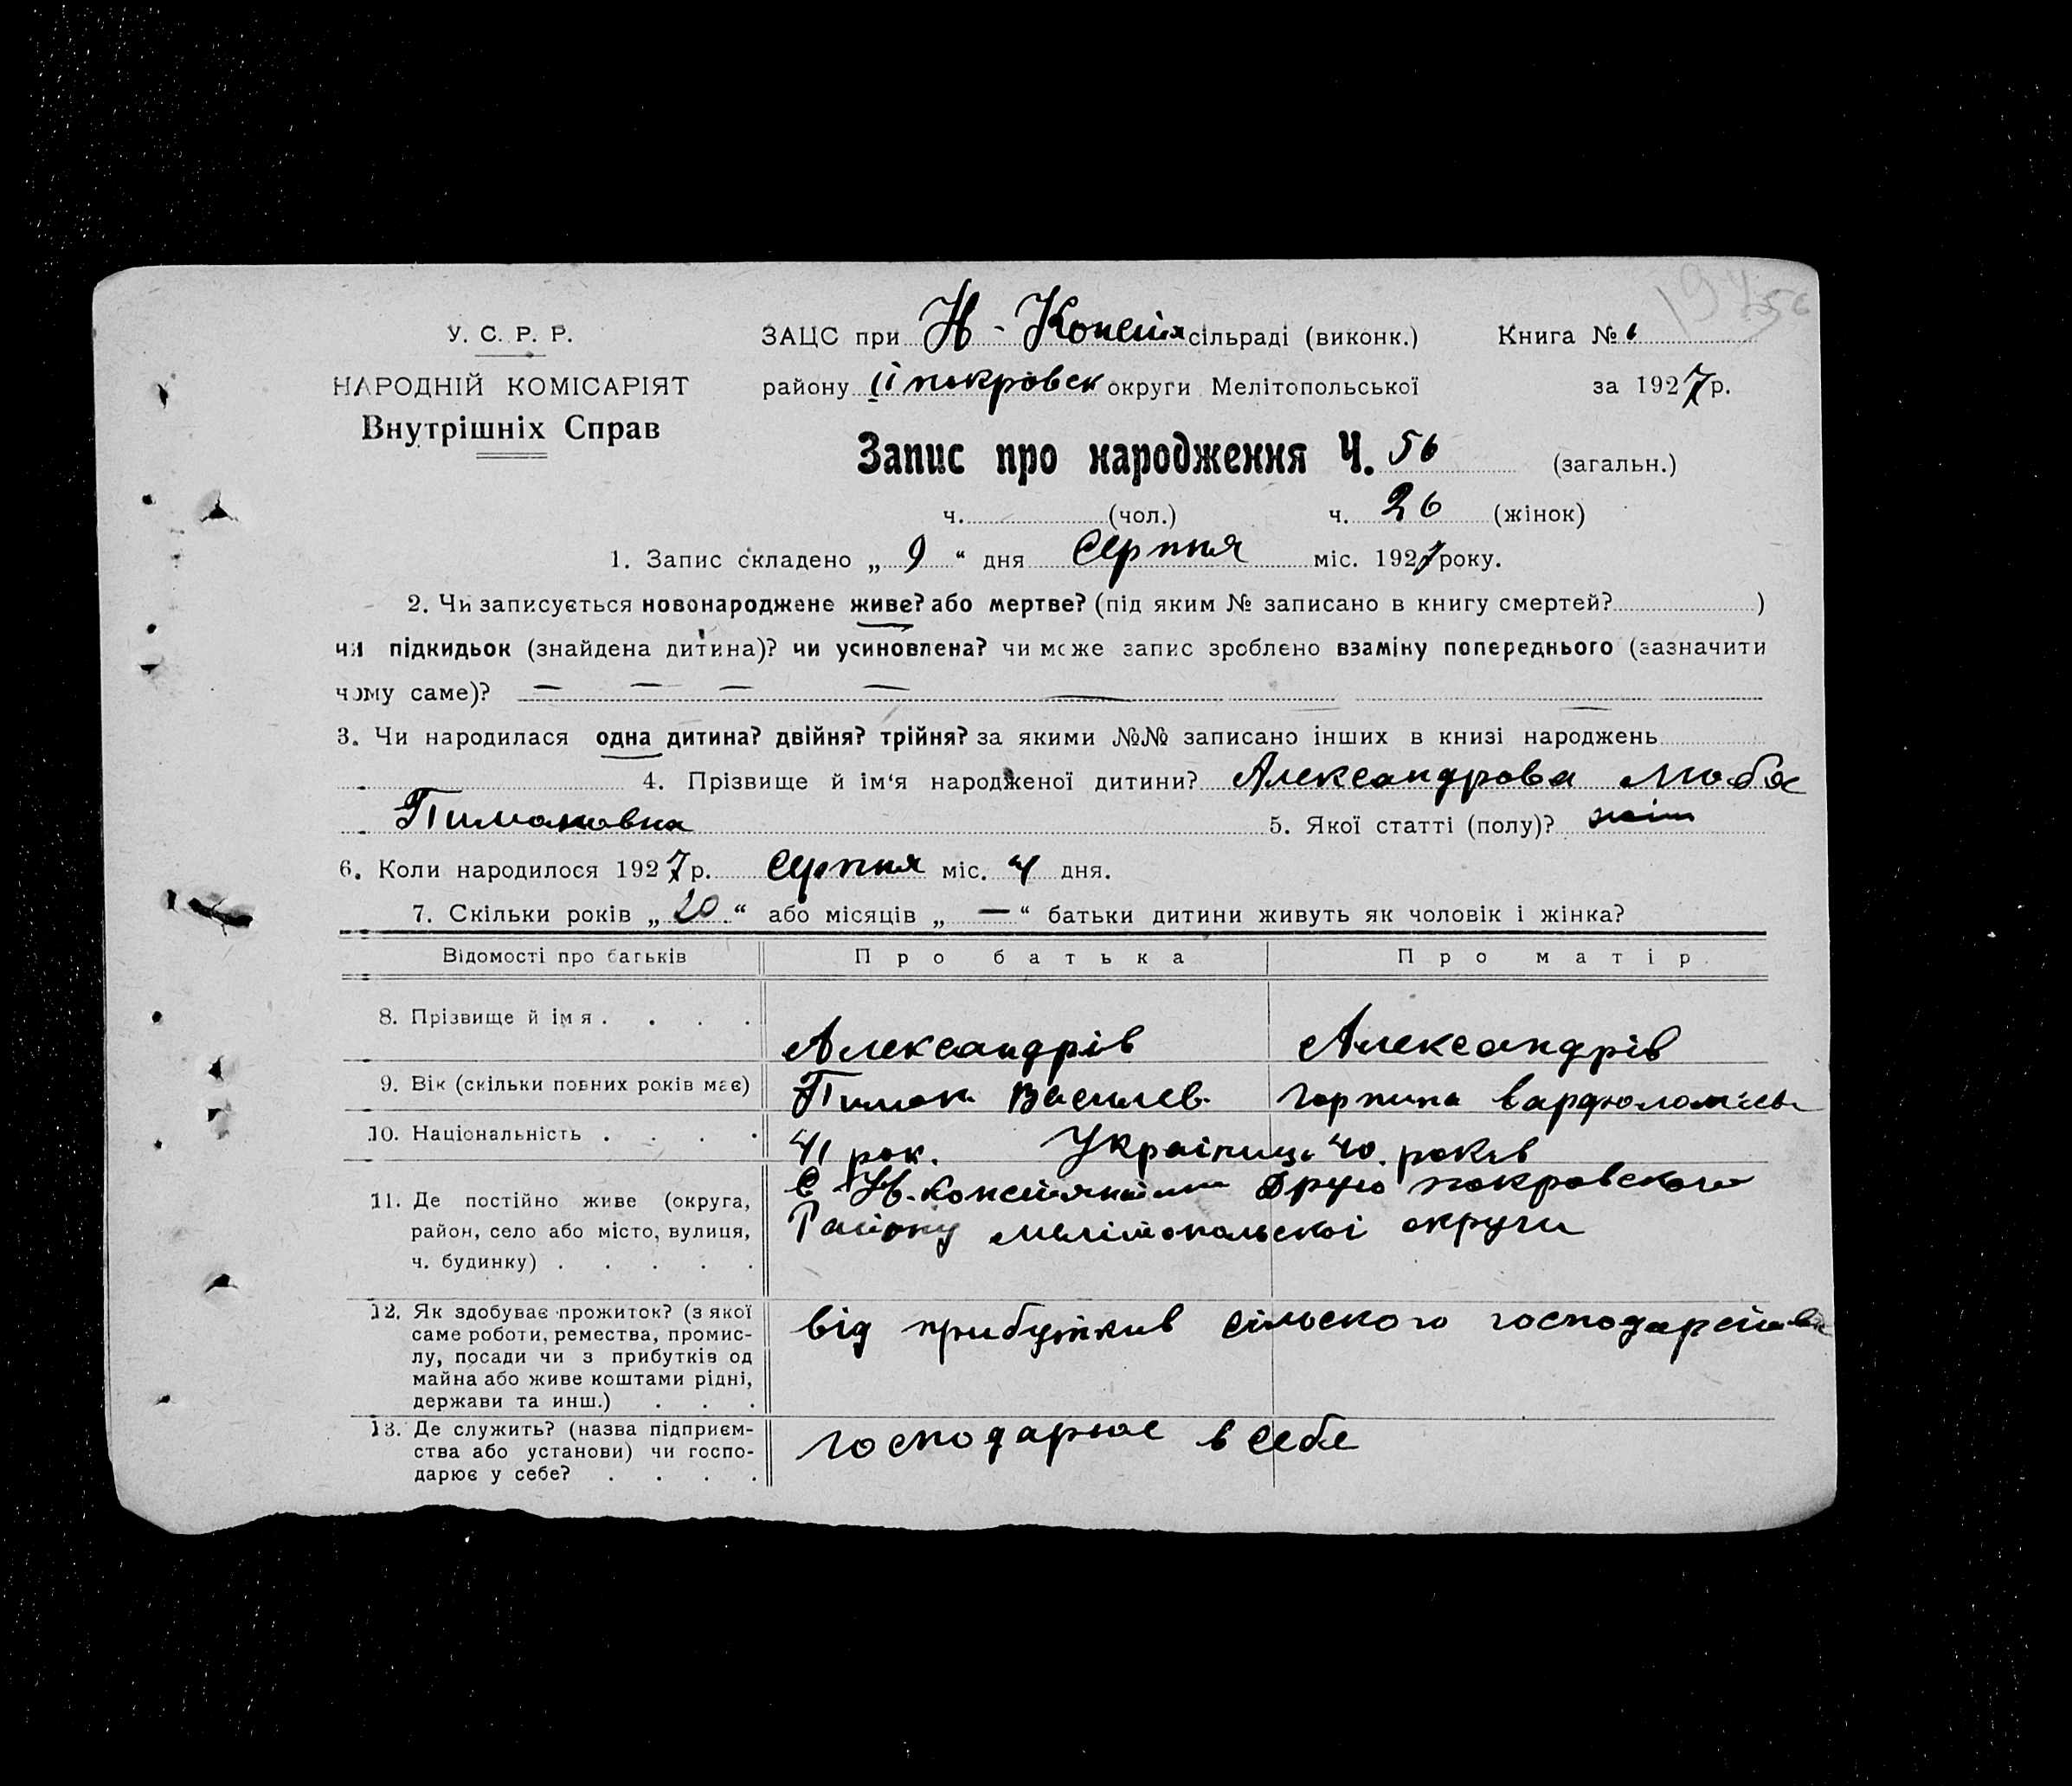 У. С. Р. Р.
НАРОДНІЙ КОМІСАРІЯТ
Внутрішніх Справ
ЗАЦС при Н - Констя сільраді (виконк.)
Книга № 6
району ІІ покровск округи Мелітопольської
за 1927 р.
Запис про народження Ч. 56 (загальн.)
ч. (чол.) ч. 26 (жінок)
1. Запис складено „ 9 “ дня Серпня міс. 1927 року.
2. Чи записується новонароджене живе? або мертве? (під яким № записано в книгу смертей? )
чи підкидьок (знайдена дитина)? чи усиновлена? чи може запис зроблено взаміну попереднього (зазначити
чому саме)? — — — — —
3. Чи народилася одна дитина? двійня? трійня? за якими №№ записано інших в книзі народжень
4. Прізвище й ім‘я народженої дитини? Александрова Люба
5. Якої статті (полу)? жін
6. Коли народилося 1927 р. серпня міс. 4 дня.
7. Скільки років „ 20 “ або місяців „ — “ батьки дитини живуть як чоловік і жінка?
Відомості про батьків
Про батька
Про матір
8. Прізвище й імя
Александрів
Александрів
9. Вік (скільки повних років має)
Василев
Горпина
10. Національність
41 рок. Українці 40. років
11. Де постійно живе (округа,
район, село або місто, вулиця,
ч. будинку)
С Друго покровского
Району мелітопольскоі округи
12. Як здобуває прожиток? (з якої
саме роботи, ремества, промис-
лу, посади чи з прибутків од
майна або живе коштами рідні,
держави та инш.)
від прибутків сільского господарства
13. Де служить? (назва підприєм-
ства або установи) чи госпо-
дарює у себе?
господарює в себе